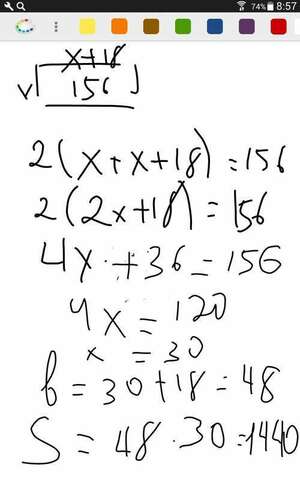 74% 8:57
x+18
x 156
2(x+x+18)=156
2(2x+18)=156
4x+36=156
4x=120
x=30
b=30+18=48
S=48·30=1440